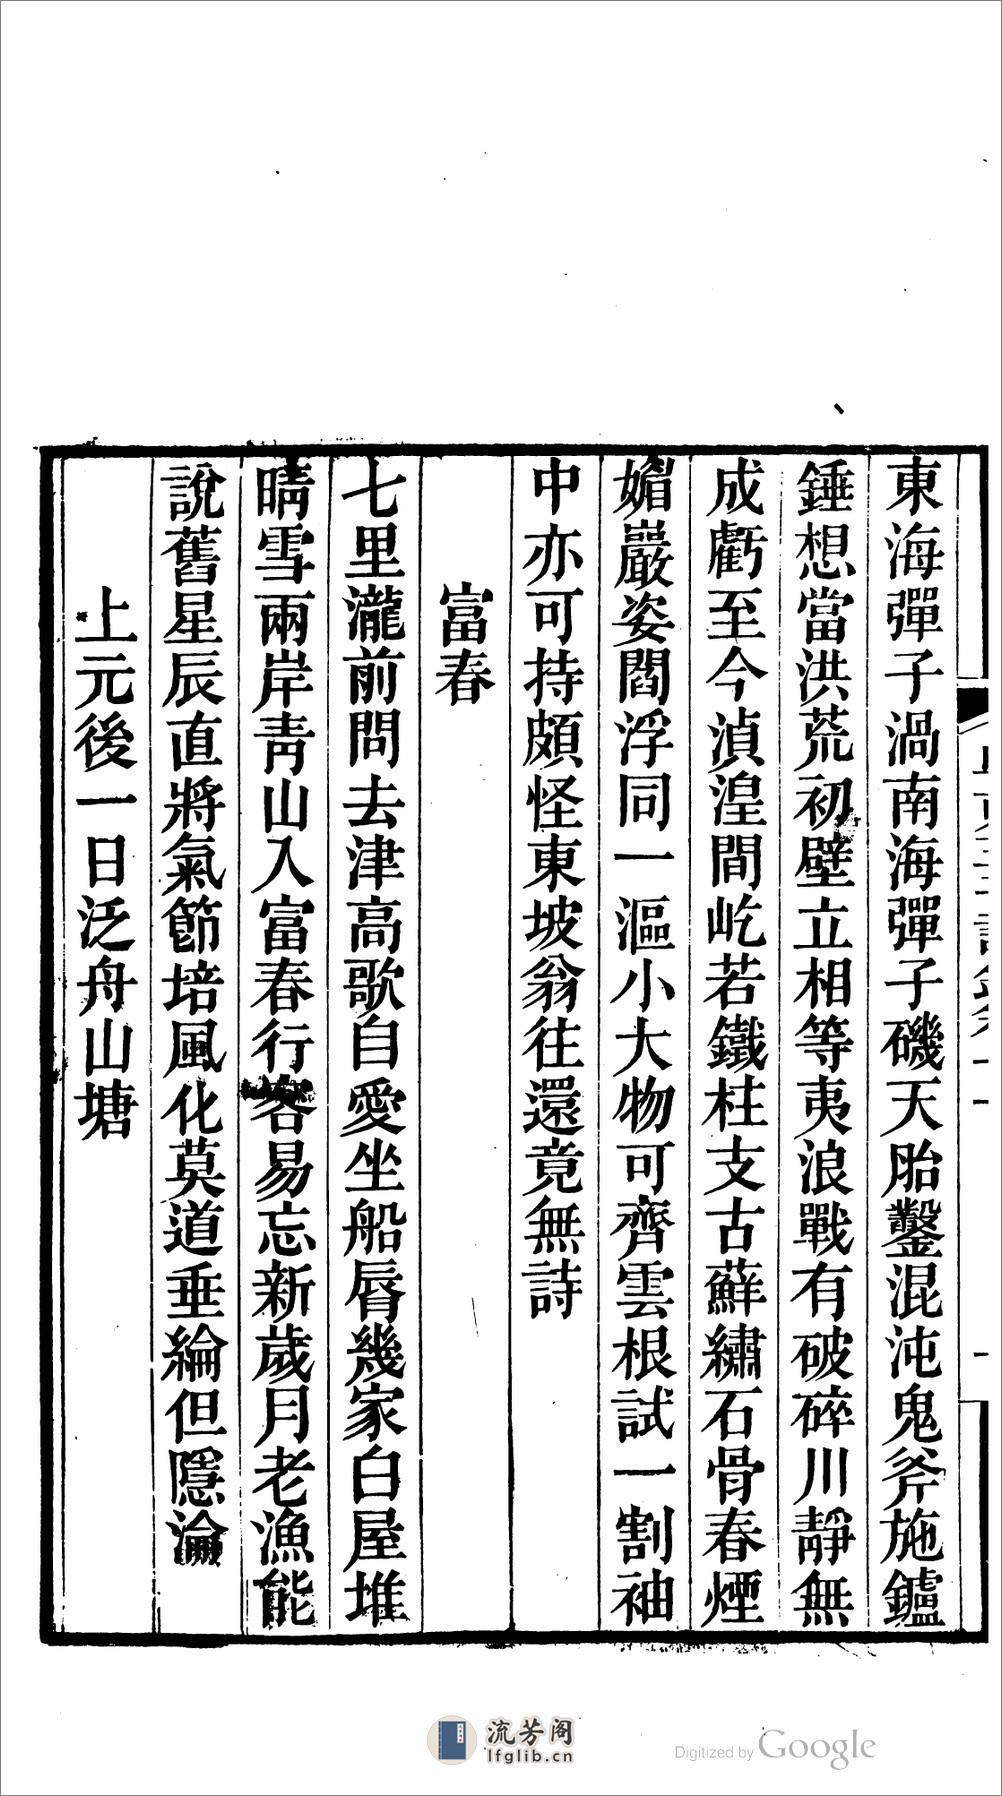 東海彈子渦南海彈子磯天胎鑿混沌鬼斧施鑪
錘想當洪荒初壁立相等夷浪戰有破碎川靜無
成虧至今湞湟間屹若鐵柱支古蘚繡石骨春煙
媚巖姿閻浮同一漚小大物可齊雲根試一割袖
中亦可持頗怪東坡翁往還竟無詩
富春
七里瀧前問去津高歌自愛坐船脣幾家白屋堆
晴雪兩岸青山入富春行客易忘新歲月老漁能
說舊星辰直將氣節培風化莫道垂綸但隱淪
上元後一日泛舟山塘
流芳阁
lfglib.cn
Digitized by Google